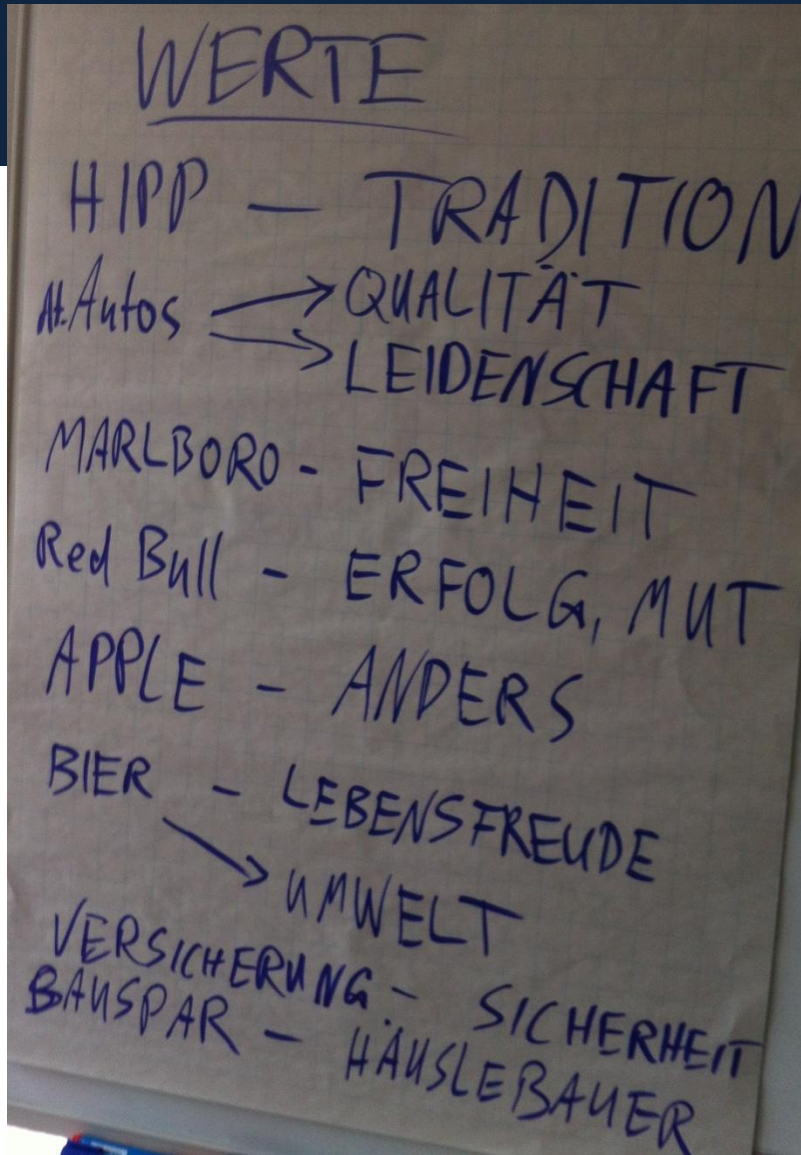 WERTE
HIPP — TRADITION
At. Autos → QUALITÄT
→ LEIDENSCHAFT
MARLBORO - FREIHEIT
Red Bull - ERFOLG, MUT
APPLE - ANDERS
BIER - LEBENSFREUDE
→ UMWELT
VERSICHERUNG - SICHERHEIT
BAUSPAR - HÄUSLEBAUER